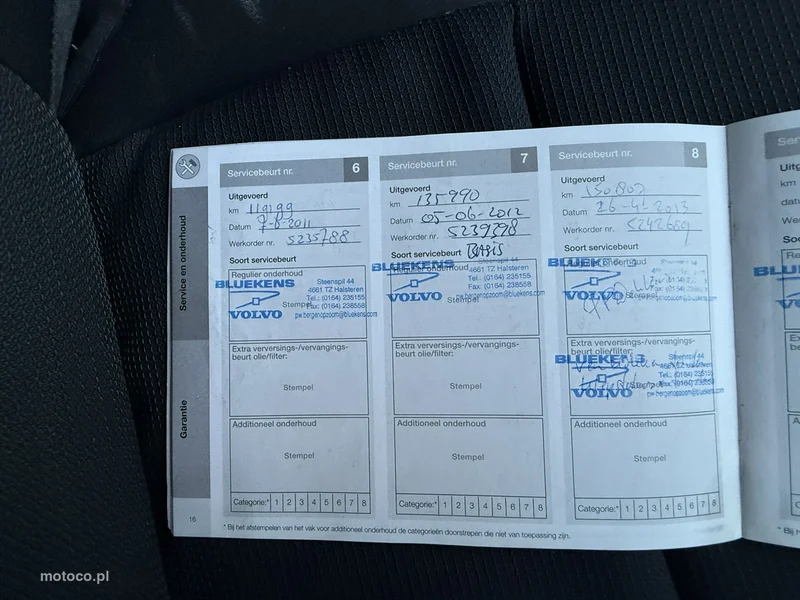 Service en onderhoud
Garantie
16
Servicebeurt nr. 6
Uitgevoerd
km 119199
Datum 7-6-2011
Werkorder nr. 5235788
Soort servicebeurt
Regulier onderhoud
BLUEKENS
VOLVO
Steenspil 44
4661 TZ Halsteren
Tel.: (0164) 235155
Fax: (0164) 238558
pw.bergenopzoom@bluekens.com
Stempel
Extra verversings-/vervangings-
beurt olie/filter:
Stempel
Additioneel onderhoud
Stempel
Categorie:* 1 2 3 4 5 6 7 8
Servicebeurt nr. 7
Uitgevoerd
km 135990
Datum 05-06-2012
Werkorder nr. 5239298
Soort servicebeurt Basis
Regulier onderhoud
BLUEKENS
VOLVO
Steenspil 44
4661 TZ Halsteren
Tel.: (0164) 235155
Fax: (0164) 238558
pw.bergenopzoom@bluekens.com
Stempel
Extra verversings-/vervangings-
beurt olie/filter:
Stempel
Additioneel onderhoud
Stempel
Categorie:* 1 2 3 4 5 6 7 8
Servicebeurt nr. 8
Uitgevoerd
km
Datum 26-4-2013
Werkorder nr. 5242669
Soort servicebeurt
Regulier onderhoud
VOLVO
Stempel
Extra verversings-/vervangings-
beurt olie/filter:
BLUEKENS
VOLVO
Steenspil 44
Tel.: (0164) 235155
Stempel
Additioneel onderhoud
Stempel
Categorie:* 1 2 3 4 5 6 7 8
* Bij het afstempelen van het vak voor additioneel onderhoud de categorieën doorstrepen die niet van toepassing zijn.
motoco.pl